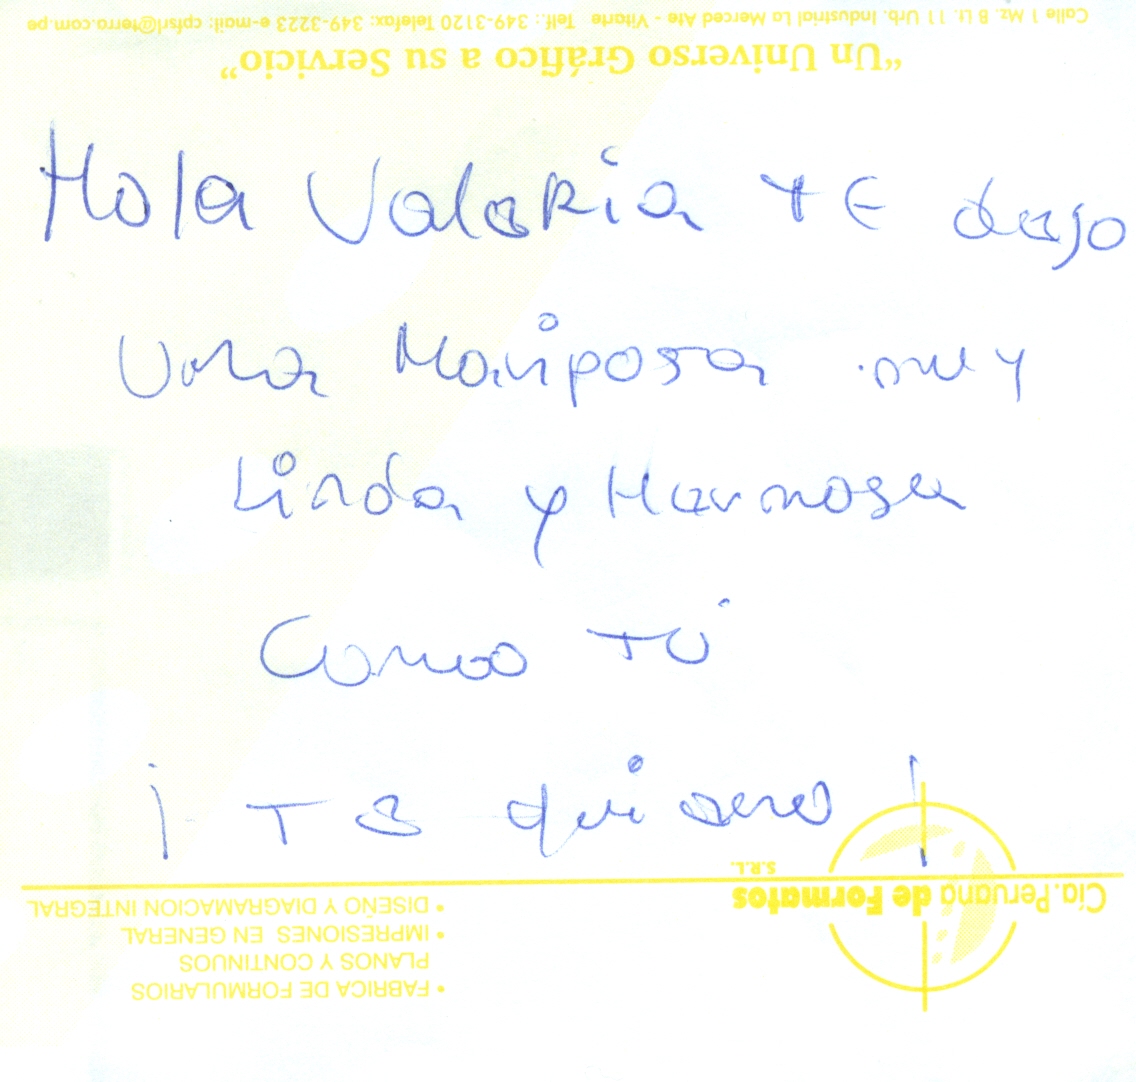 Calle 1 Mz. B Lt. 11 Urb. Industrial La Merced Ate - Vitarte Telf.: 349-3120 Telefax: 349-3223 e-mail: cpfsrl@terra.com.pe
"Un Universo Gráfico a su Servicio"
Hola Valeria TE dejo
Una Mariposa muy
Linda y Hermosa
Como TÚ
¡ Te quiero !
S.R.L.
Cía. Peruana de Formatos
• DISEÑO Y DIAGRAMACION INTEGRAL
• IMPRESIONES EN GENERAL
PLANOS Y CONTINUOS
• FABRICA DE FORMULARIOS